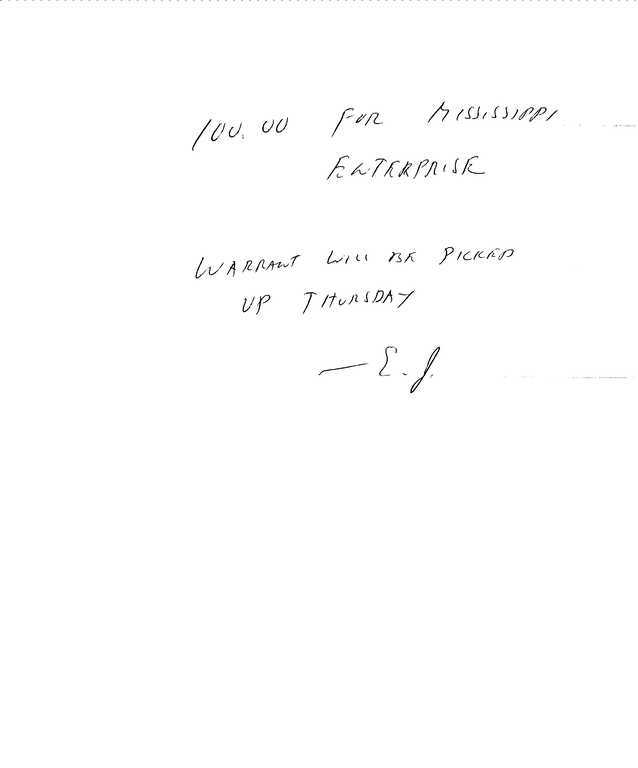 100.00 FOR MISSISSIPPI
ENTERPRISE
WARRANT WILL BE PICKED
UP THURSDAY
— E. J.